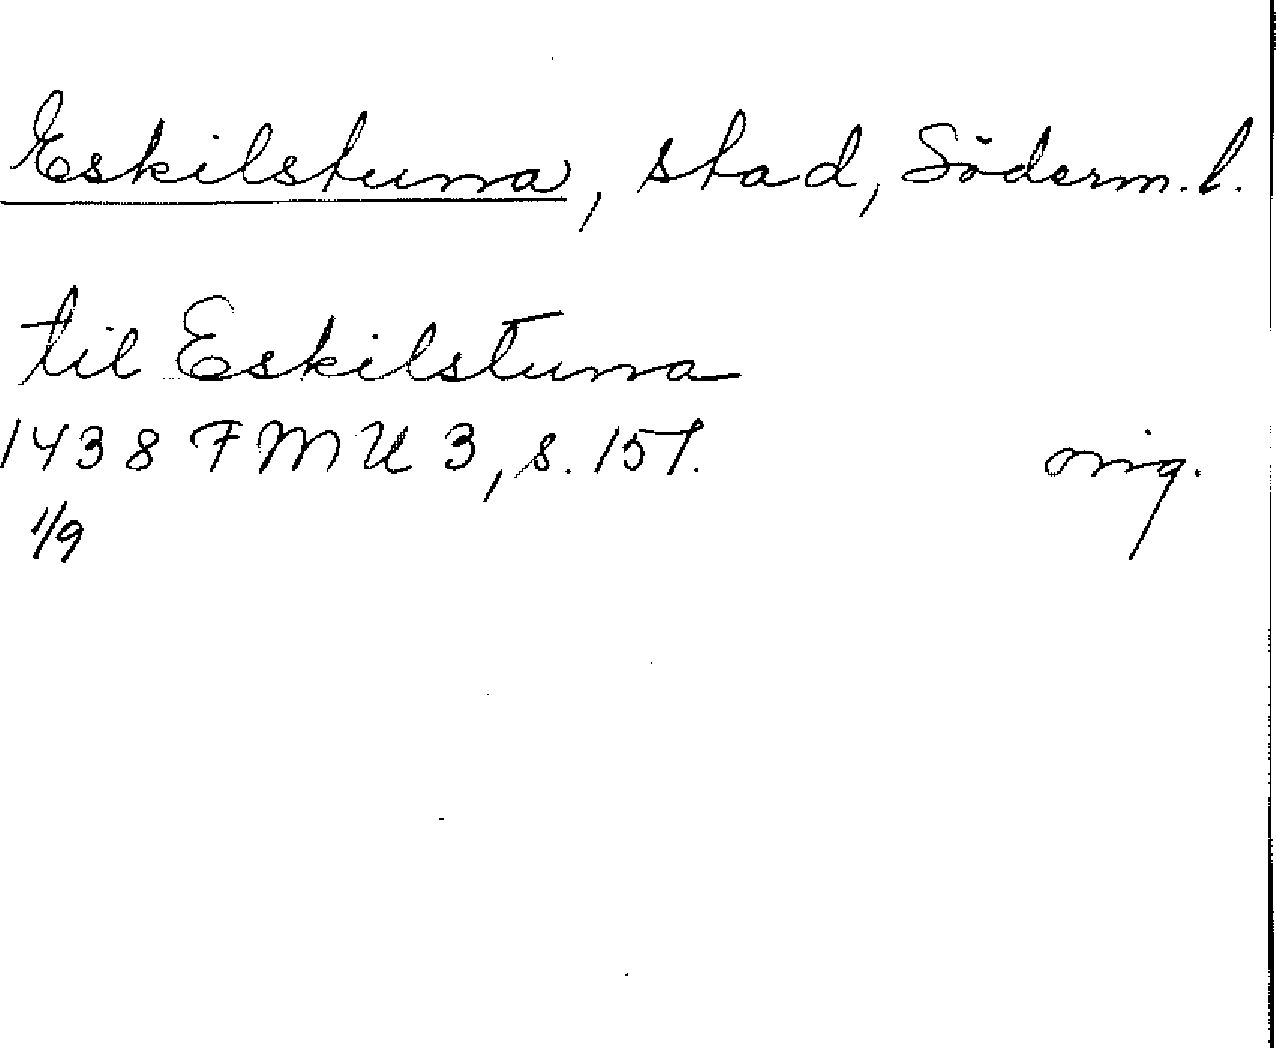 Eskilstuna, stad, Söderm. l.
til Eskilstuna
1438 FMU 3, s. 157. orig.
1/9